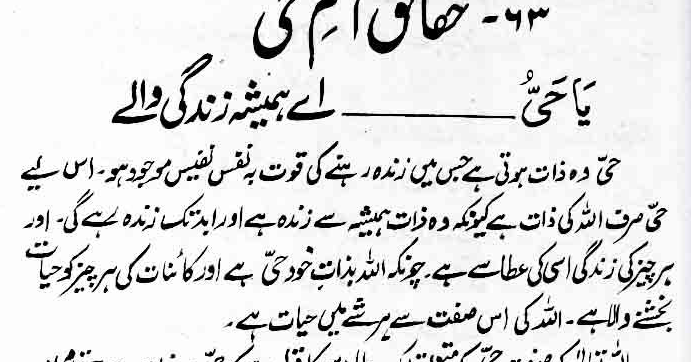 ۶۳- حقائق اسمِ حی
یَا حَیُّ ــــــــــــ اے ہمیشہ زندگی والے
حیّ وہ ذات ہوتی ہے جس میں زندہ رہنے کی قوت بہ نفس نفیس موجود ہو۔ اس لیے
حیّ صرف اللہ کی ذات ہے کیونکہ وہ ذات ہمیشہ سے زندہ ہے اور ابد تک زندہ رہے گی۔ اور
ہر چیز کی زندگی اسی کی عطا سے ہے۔ چونکہ اللہ بذاتِ خود حیّ ہے اور کائنات کی ہر چیز کو حیات
بخشنے والا ہے۔ اللہ کی اس صفت سے ہر شے میں حیات ہے۔